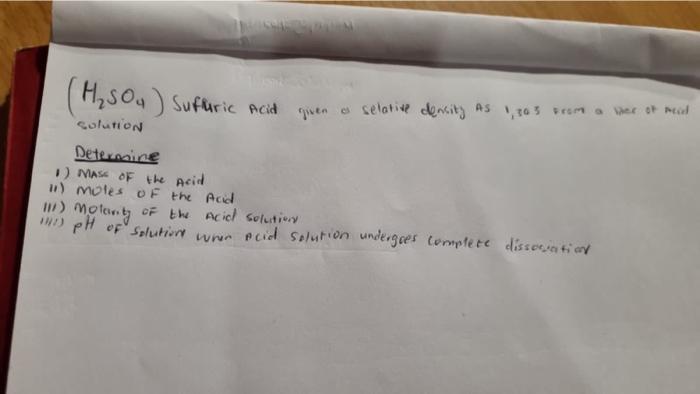 (H₂SO₄) Sufuric Acid given a selative density As 1,303 From a liter of Acid
solution
Determine
I) Mass OF the Acid
II) moles OF the Acid
III) Molarity OF the Acid solution
IIII) pH OF Solution when Acid Solution undergoes complete dissociation